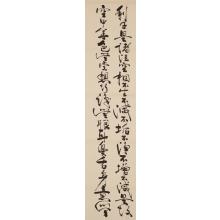 利子是諸法空相不生不滅不垢不淨不增不減是故
空中無色無受想行識無眼耳鼻舌身意無